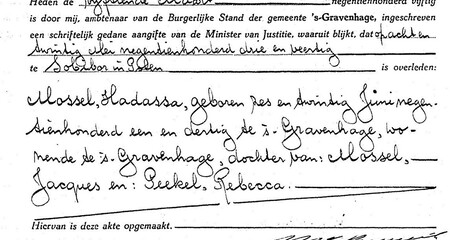 Heden de negentienhonderd vijftig
is door mij, ambtenaar van de Burgerlijke Stand der gemeente 's-Gravenhage, ingeschreven
een schriftelijk gedane aangifte van de Minister van Justitie, waaruit blijkt, dat op acht en
twintig Mei negentienhonderd drie en veertig
te Sobibor in Polen is overleden:
Mossel, Hadassa, geboren zes en twintig Juni negen-
tienhonderd een en dertig te 's-Gravenhage, wo-
nende te 's-Gravenhage, dochter van: Mossel,
Jacques en: Peekel, Rebecca.
Hiervan is deze akte opgemaakt.